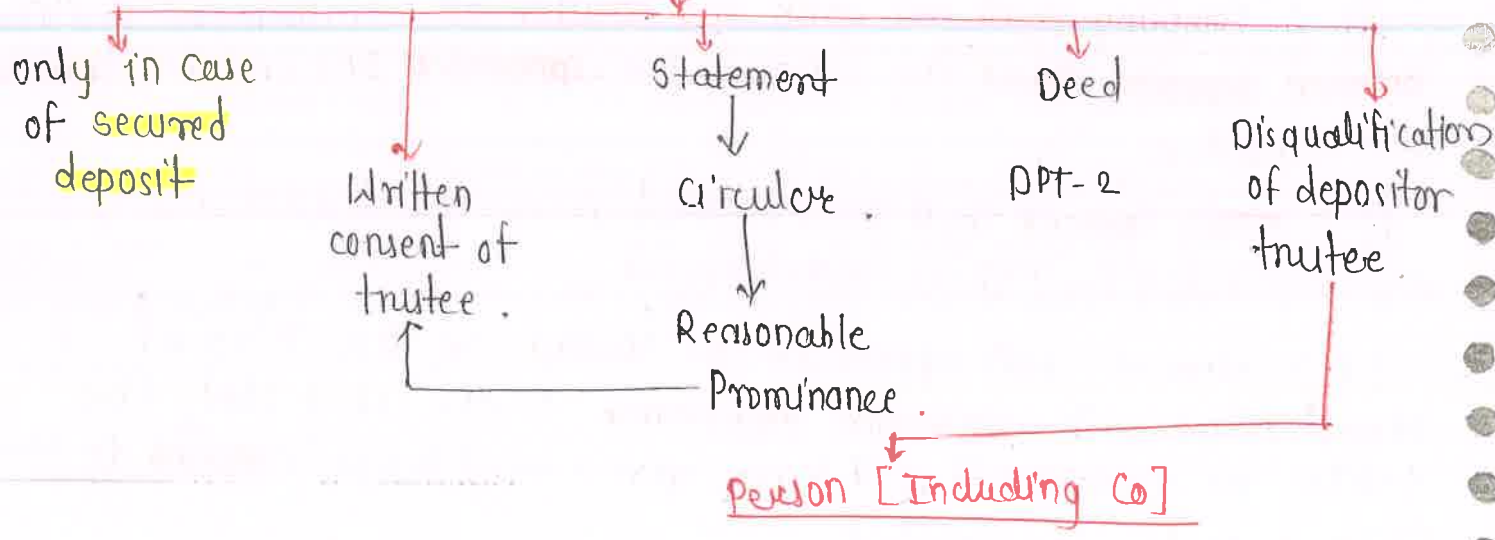 only in case
of secured
deposit
Written
consent of
trustee.
Statement
Circulare.
Reasonable
Prominance.
Deed
DPT-2
Disqualification
of depositor
trutee.
Person [Including Co]